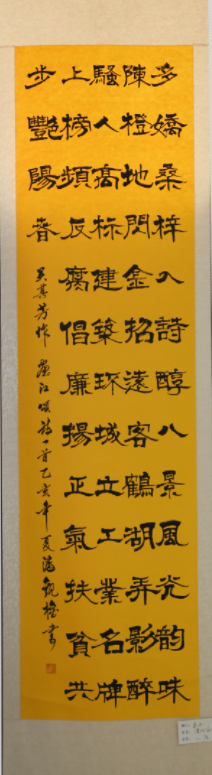 多嬌桑梓入詩醇八景風光韵味
陳橙地閃金招遠客鶴湖弄影醉
騷人高标建築环城立工業名牌
上榜頻反腐倡廉揚正氣扶貧共
步艷陽春
吴其芳作 江頌詩一首乙亥年夏 書